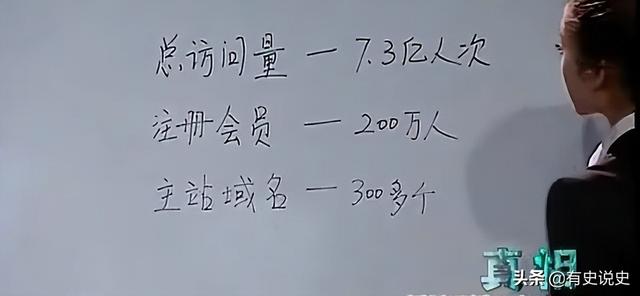 总访问量 — 7.3亿人次
注册会员 — 200万人
主站域名 — 300多个
真相
头条 @有史说史